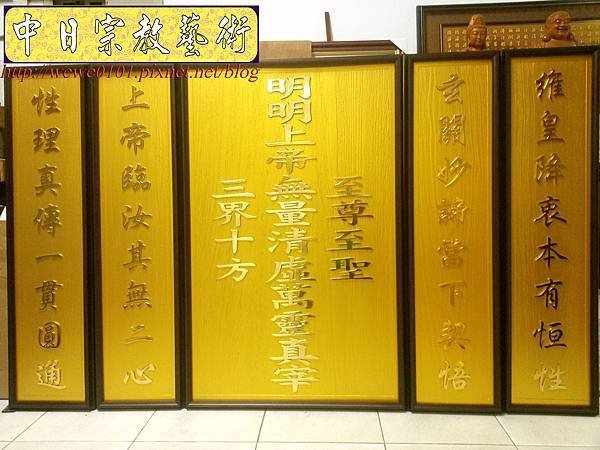 中日宗教藝術
http://wewe0101.pixnet.net/blog
維皇降衷本有恒性
玄關妙諦當下契悟
至尊至聖
明明上帝無量清虛萬靈真宰
三界十方
上帝臨汝其無二心
性理真傳一貫圓通